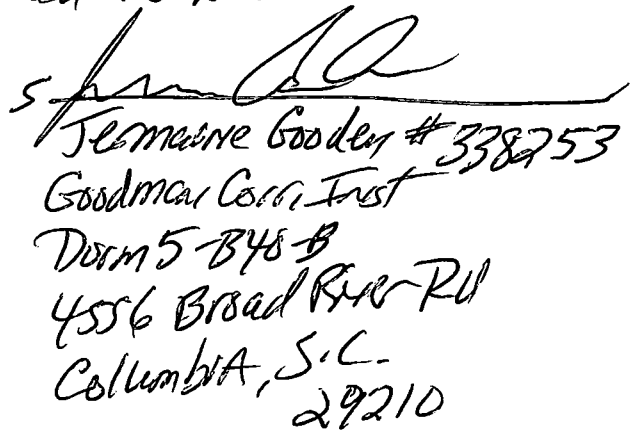 S
Jemaine Gooden #338253
Goodman Corr. Inst
Dorm 5-B48-B
4556 Broad River Rd
Columbia, S.C.
29210